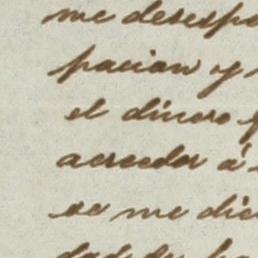 me desespe
pacian y
el dinero
acreedor á
se me die